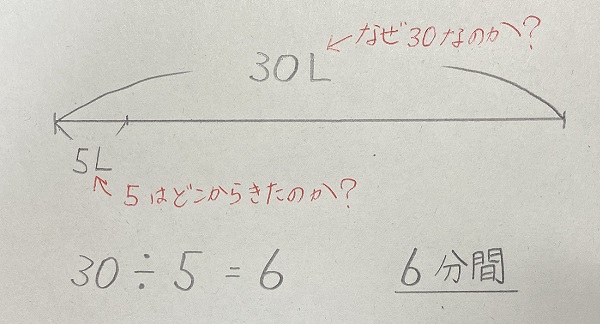 なぜ30なのか？
30L
5L
5はどこからきたのか？
30÷5=6 6分間